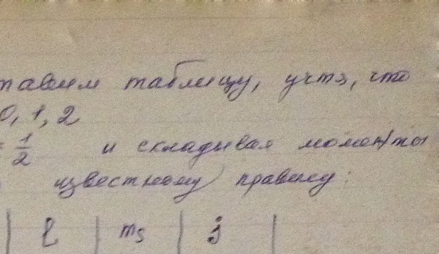 тавим таблицу, учтя, что
0, 1, 2
= 1/2 и складывая моменты
известному правилу:
| l | ms | j |